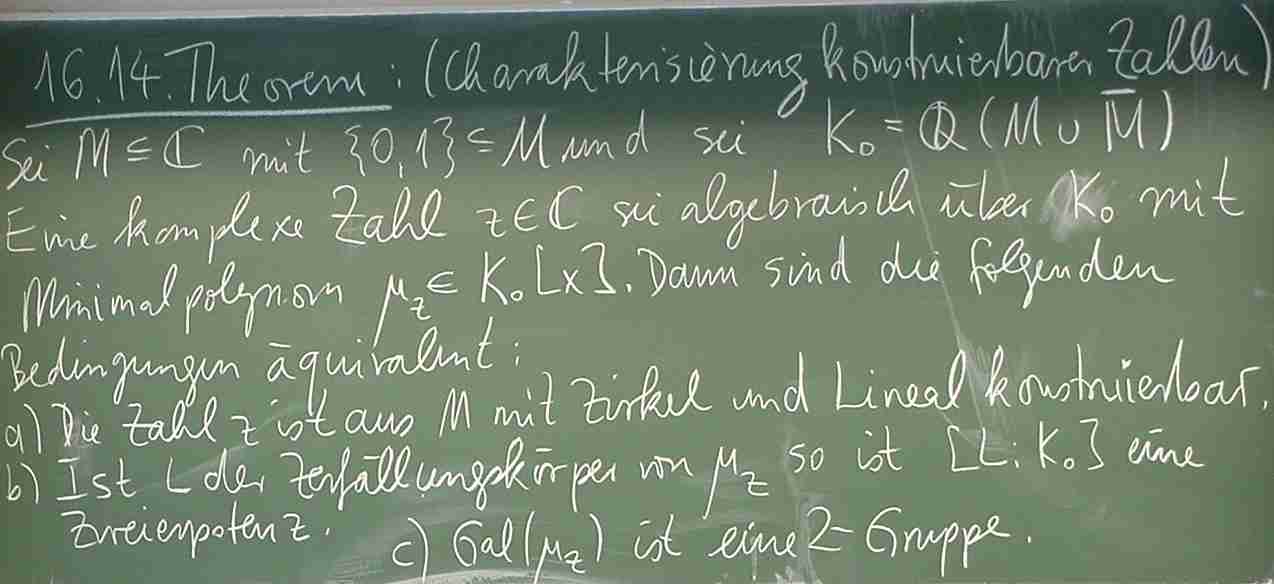 16.14. Theorem: (Charakterisierung konstruierbarer Zahlen)
Sei M ⊆ ℂ mit {0,1} ⊆ M und sei K₀ = ℚ(M ∪ M̅)
Eine komplexe Zahl z ∈ ℂ sei algebraisch über K₀ mit
Minimalpolynom μ_z ∈ K₀[X]. Dann sind die folgenden
Bedingungen äquivalent:
a) Die Zahl z ist aus M mit Zirkel und Lineal konstruierbar.
b) Ist L der Zerfällungskörper von μ_z so ist [L:K₀] eine
Zweierpotenz. c) Gal(μ_z) ist eine 2-Gruppe.